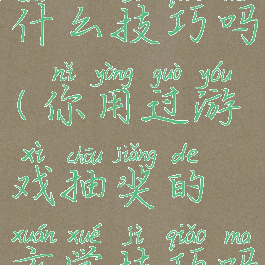 什么技巧吗
nǐ yòng guò yóu
(你用过游
xì chōu jiǎng de
戏抽奖的
xuán xué jì qiǎo ma
玄学技巧吗